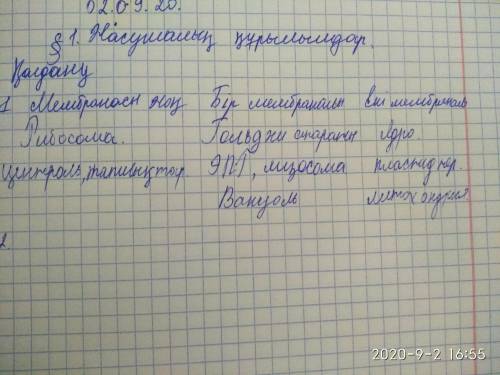 02.09.20.
§1. Жасушалық құрылымдар.
Қолдану
1 Мембранасы жоқ Бір мембраналы Екі мембраналы
Рибосома. Гольджи аппараты Ядро.
Центроль, ЭПТ, лизосома пластидтер.
Вакуоль митохондрия
2.
2020-9-2 16:55